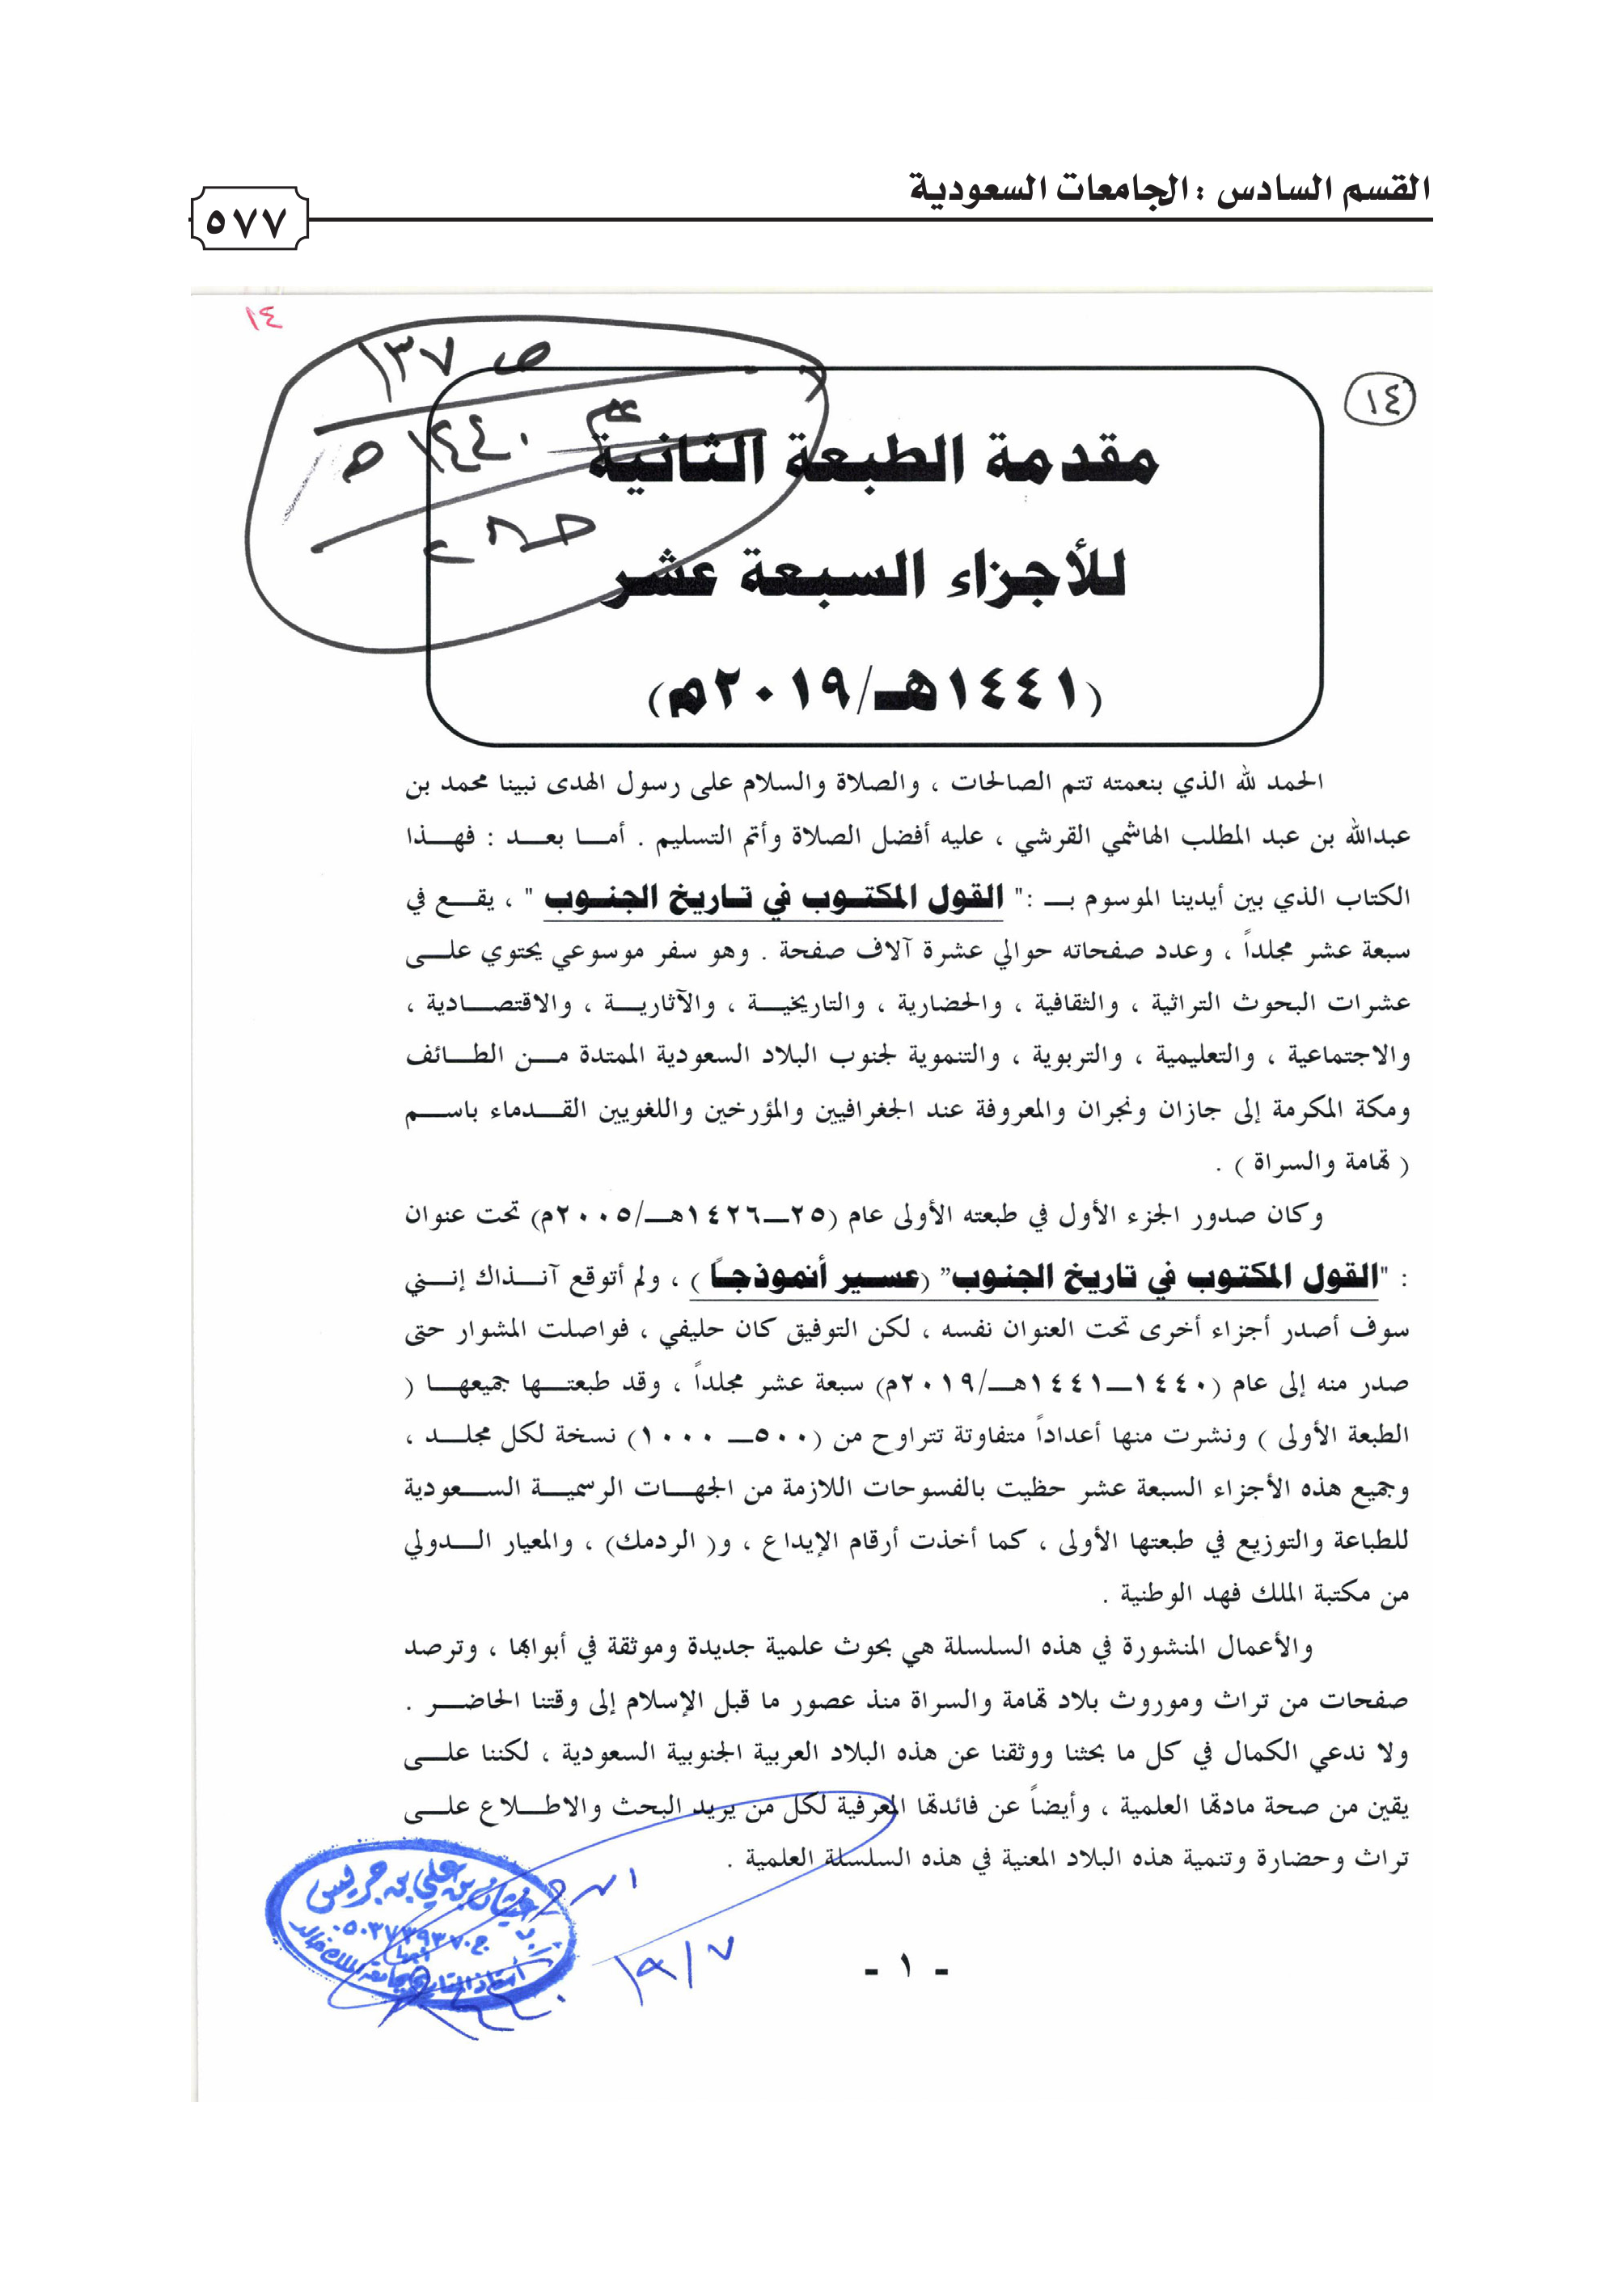 القسم السادس : الجامعات السعودية
٥٧٧
١٤
ص ١٣٧
١٤٤٠ هـ
١٤
مقدمة الطبعة الثانية
للأجزاء السبعة عشر
(١٤٤١هـ/٢٠١٩م)
الحمد لله الذي بنعمته تتم الصالحات ، والصلاة والسلام على رسول الهدى نبينا محمد بن
عبدالله بن عبد المطلب الهاشمي القرشي ، عليه أفضل الصلاة وأتم التسليم . أما بعد : فهذا
الكتاب الذي بين أيدينا الموسوم بـ :" القول المكتوب في تاريخ الجنوب " ، يقع في
سبعة عشر مجلداً ، وعدد صفحاته حوالي عشرة آلاف صفحة . وهو سفر موسوعي يحتوي على
عشرات البحوث التراثية ، والثقافية ، والحضارية ، والتاريخية ، والآثارية ، والاقتصادية ،
والاجتماعية ، والتعليمية ، والتربوية ، والتنموية لجنوب البلاد السعودية الممتدة من الطائف
ومكة المكرمة إلى جازان ونجران والمعروفة عند الجغرافيين والمؤرخين واللغويين القدماء باسم
( تهامة والسراة ) .
وكان صدور الجزء الأول في طبعته الأولى عام (٢٥ـ١٤٢٦هـ/٢٠٠٥م) تحت عنوان
: "القول المكتوب في تاريخ الجنوب" (عسير أنموذجاً ) ، ولم أتوقع آنذاك إنني
سوف أصدر أجزاء أخرى تحت العنوان نفسه ، لكن التوفيق كان حليفي ، فواصلت المشوار حتى
صدر منه إلى عام (١٤٤٠ـ١٤٤١هـ/٢٠١٩م) سبعة عشر مجلداً ، وقد طبعتها جميعها (
الطبعة الأولى ) ونشرت منها أعداداً متفاوتة تتراوح من (٥٠٠ـ ١٠٠٠) نسخة لكل مجلد ،
وجميع هذه الأجزاء السبعة عشر حظيت بالفسوحات اللازمة من الجهات الرسمية السعودية
للطباعة والتوزيع في طبعتها الأولى ، كما أخذت أرقام الإيداع ، و( الردمك) ، والمعيار الدولي
من مكتبة الملك فهد الوطنية .
والأعمال المنشورة في هذه السلسلة هي بحوث علمية جديدة وموثقة في أبوابها ، وترصد
صفحات من تراث وموروث بلاد تهامة والسراة منذ عصور ما قبل الإسلام إلى وقتنا الحاضر .
ولا ندعي الكمال في كل ما بحثنا ووثقنا عن هذه البلاد العربية الجنوبية السعودية ، لكننا على
يقين من صحة مادتها العلمية ، وأيضاً عن فائدتها المعرفية لكل من يريد البحث والاطلاع على
تراث وحضارة وتنمية هذه البلاد المعنية في هذه السلسلة العلمية .
غيثان بن علي بن جريس
ج.٠٥٠٣٧٣٩٣٧٠
أبها
أستاذ التاريخ بجامعة الملك خالد
- ١ -